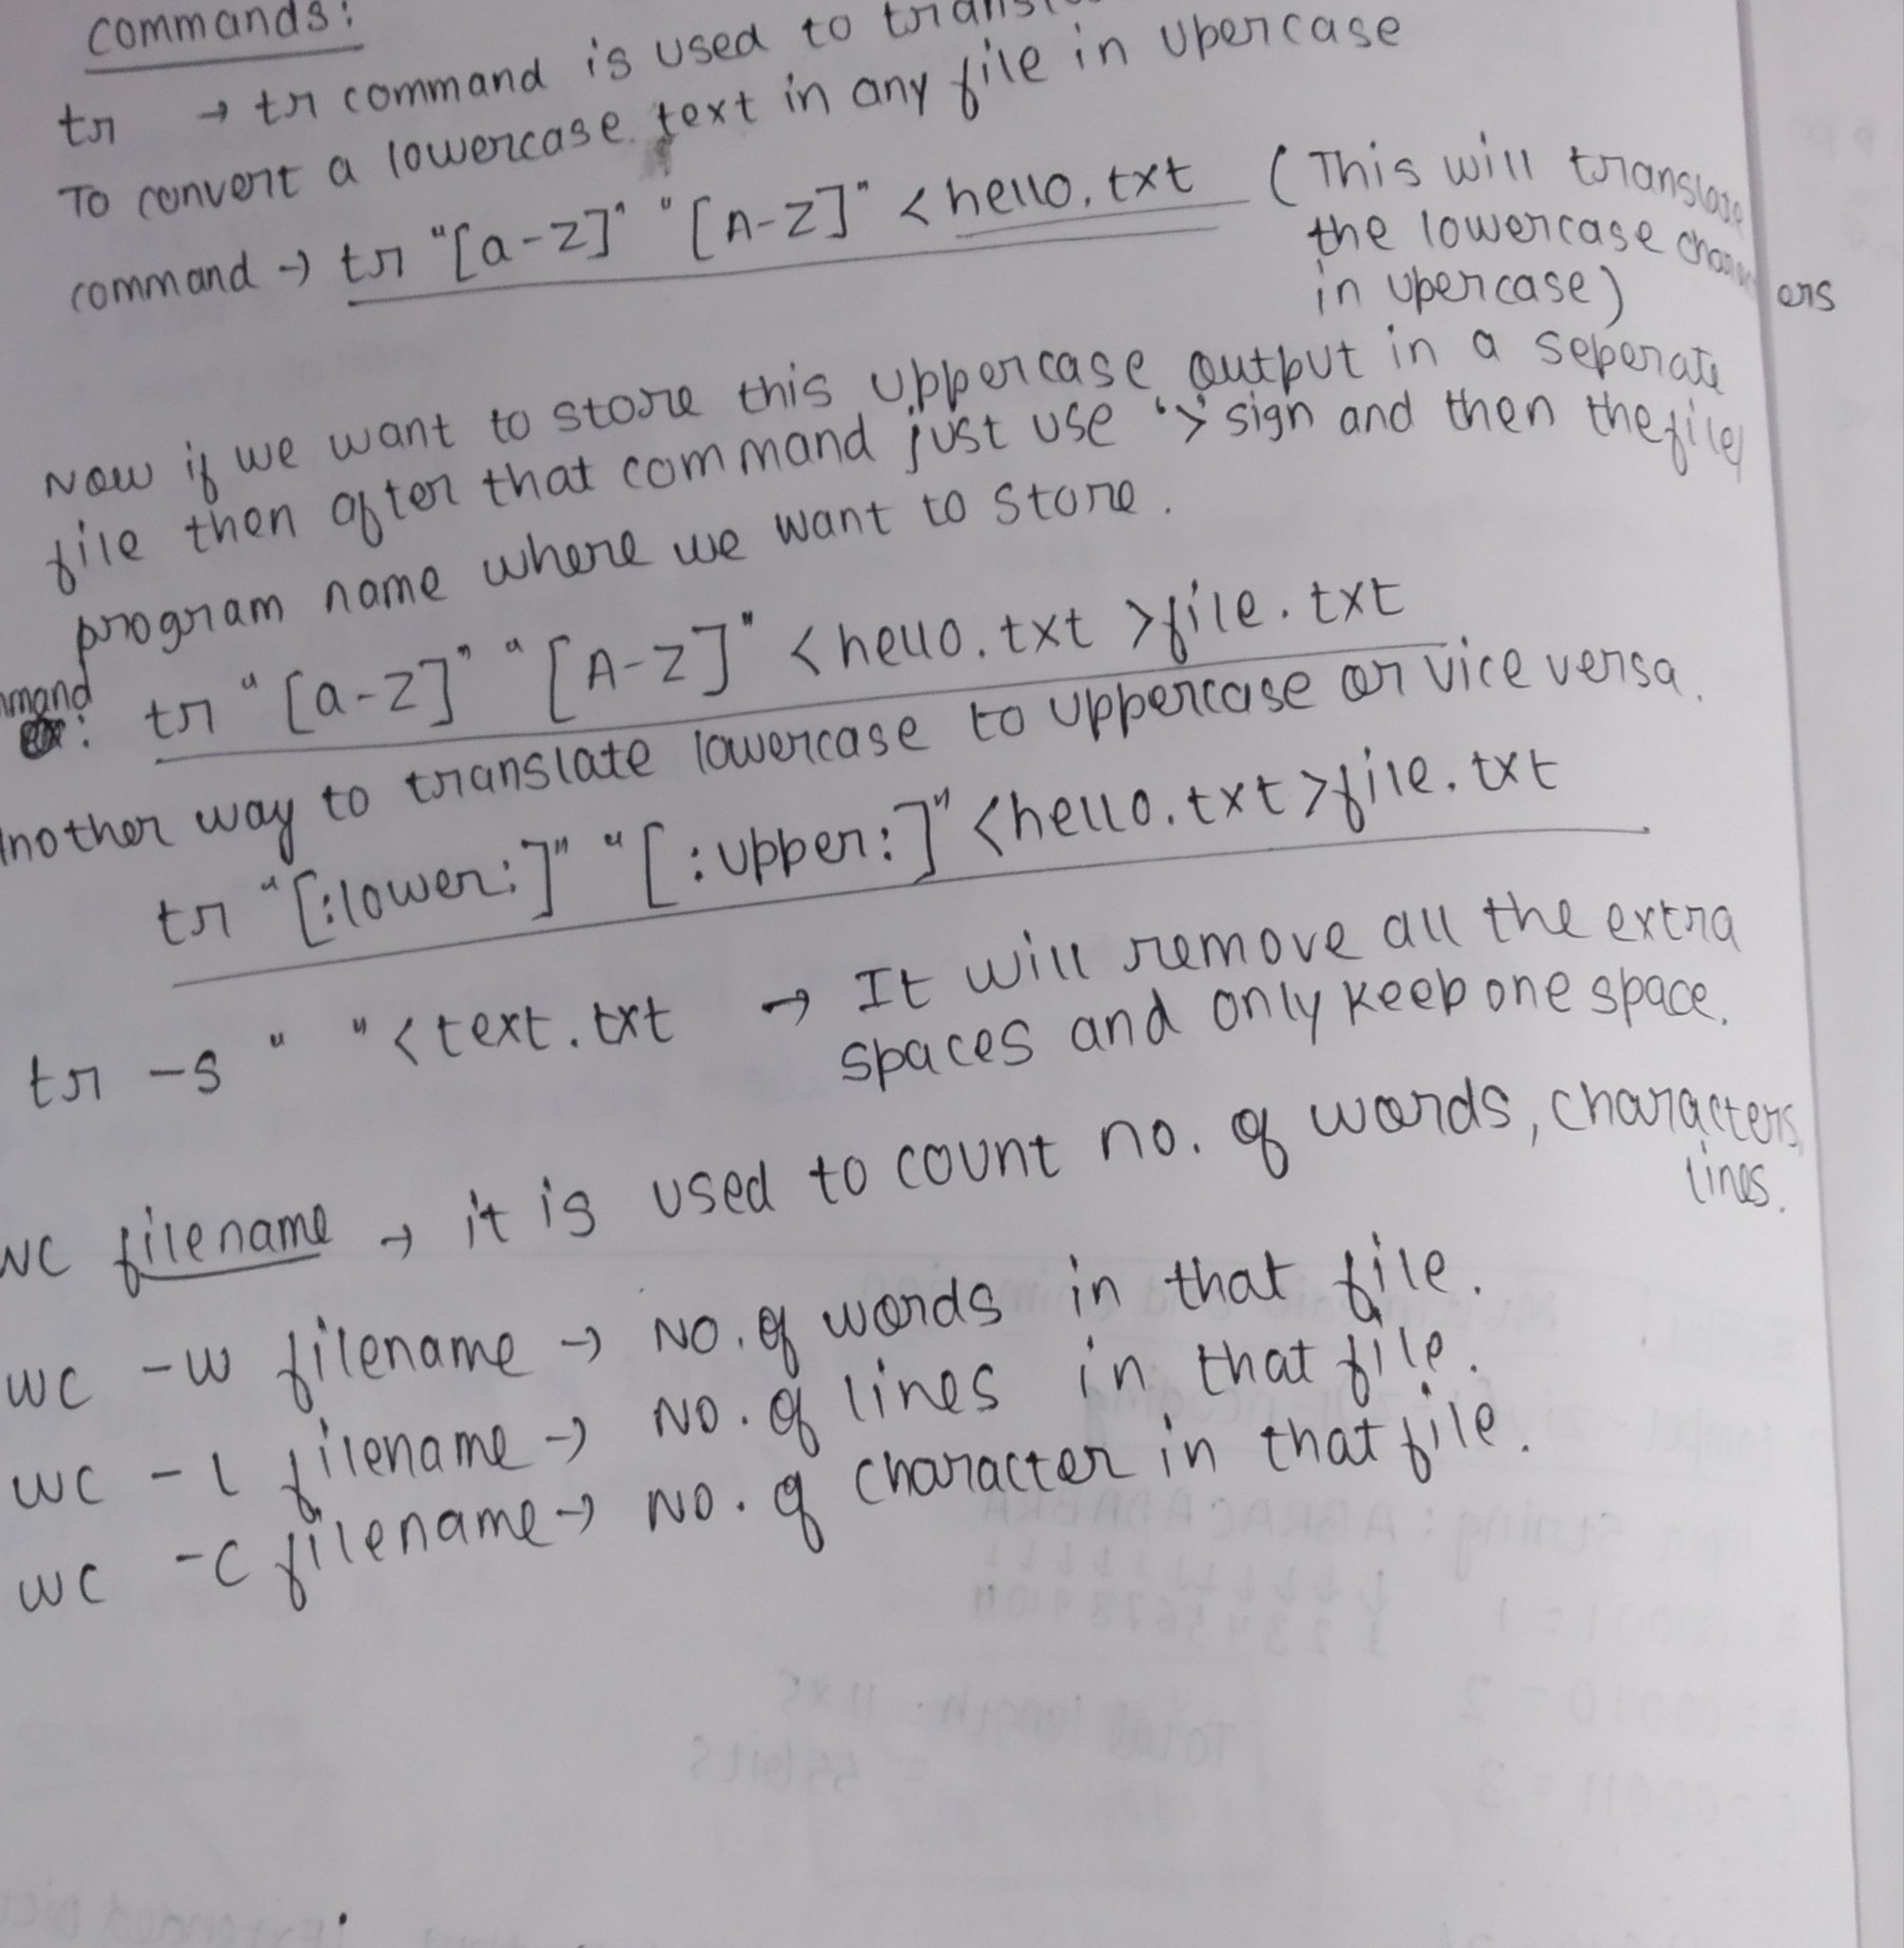 commands:
tr → tr command is used to
To convert a lowercase text in any file in upercase
command → tr "[a-z]" "[A-Z]" < hello.txt (This will translate
the lowercase characters
in upercase)
Now if we want to store this uppercase output in a seperate
file then after that command just use '>' sign and then the file/
program name where we want to store.
tr "[a-z]" "[A-Z]" < hello.txt > file.txt
Another way to translate lowercase to uppercase or vice versa.
tr "[:lower:]" "[:upper:]" < hello.txt > file.txt
tr -s " " < text.txt → It will remove all the extra
spaces and only keep one space.
wc filename → it is used to count no. of words, characters,
lines.
wc -w filename → No. of words in that file.
wc -l filename → No. of lines in that file.
wc -c filename → No. of character in that file.